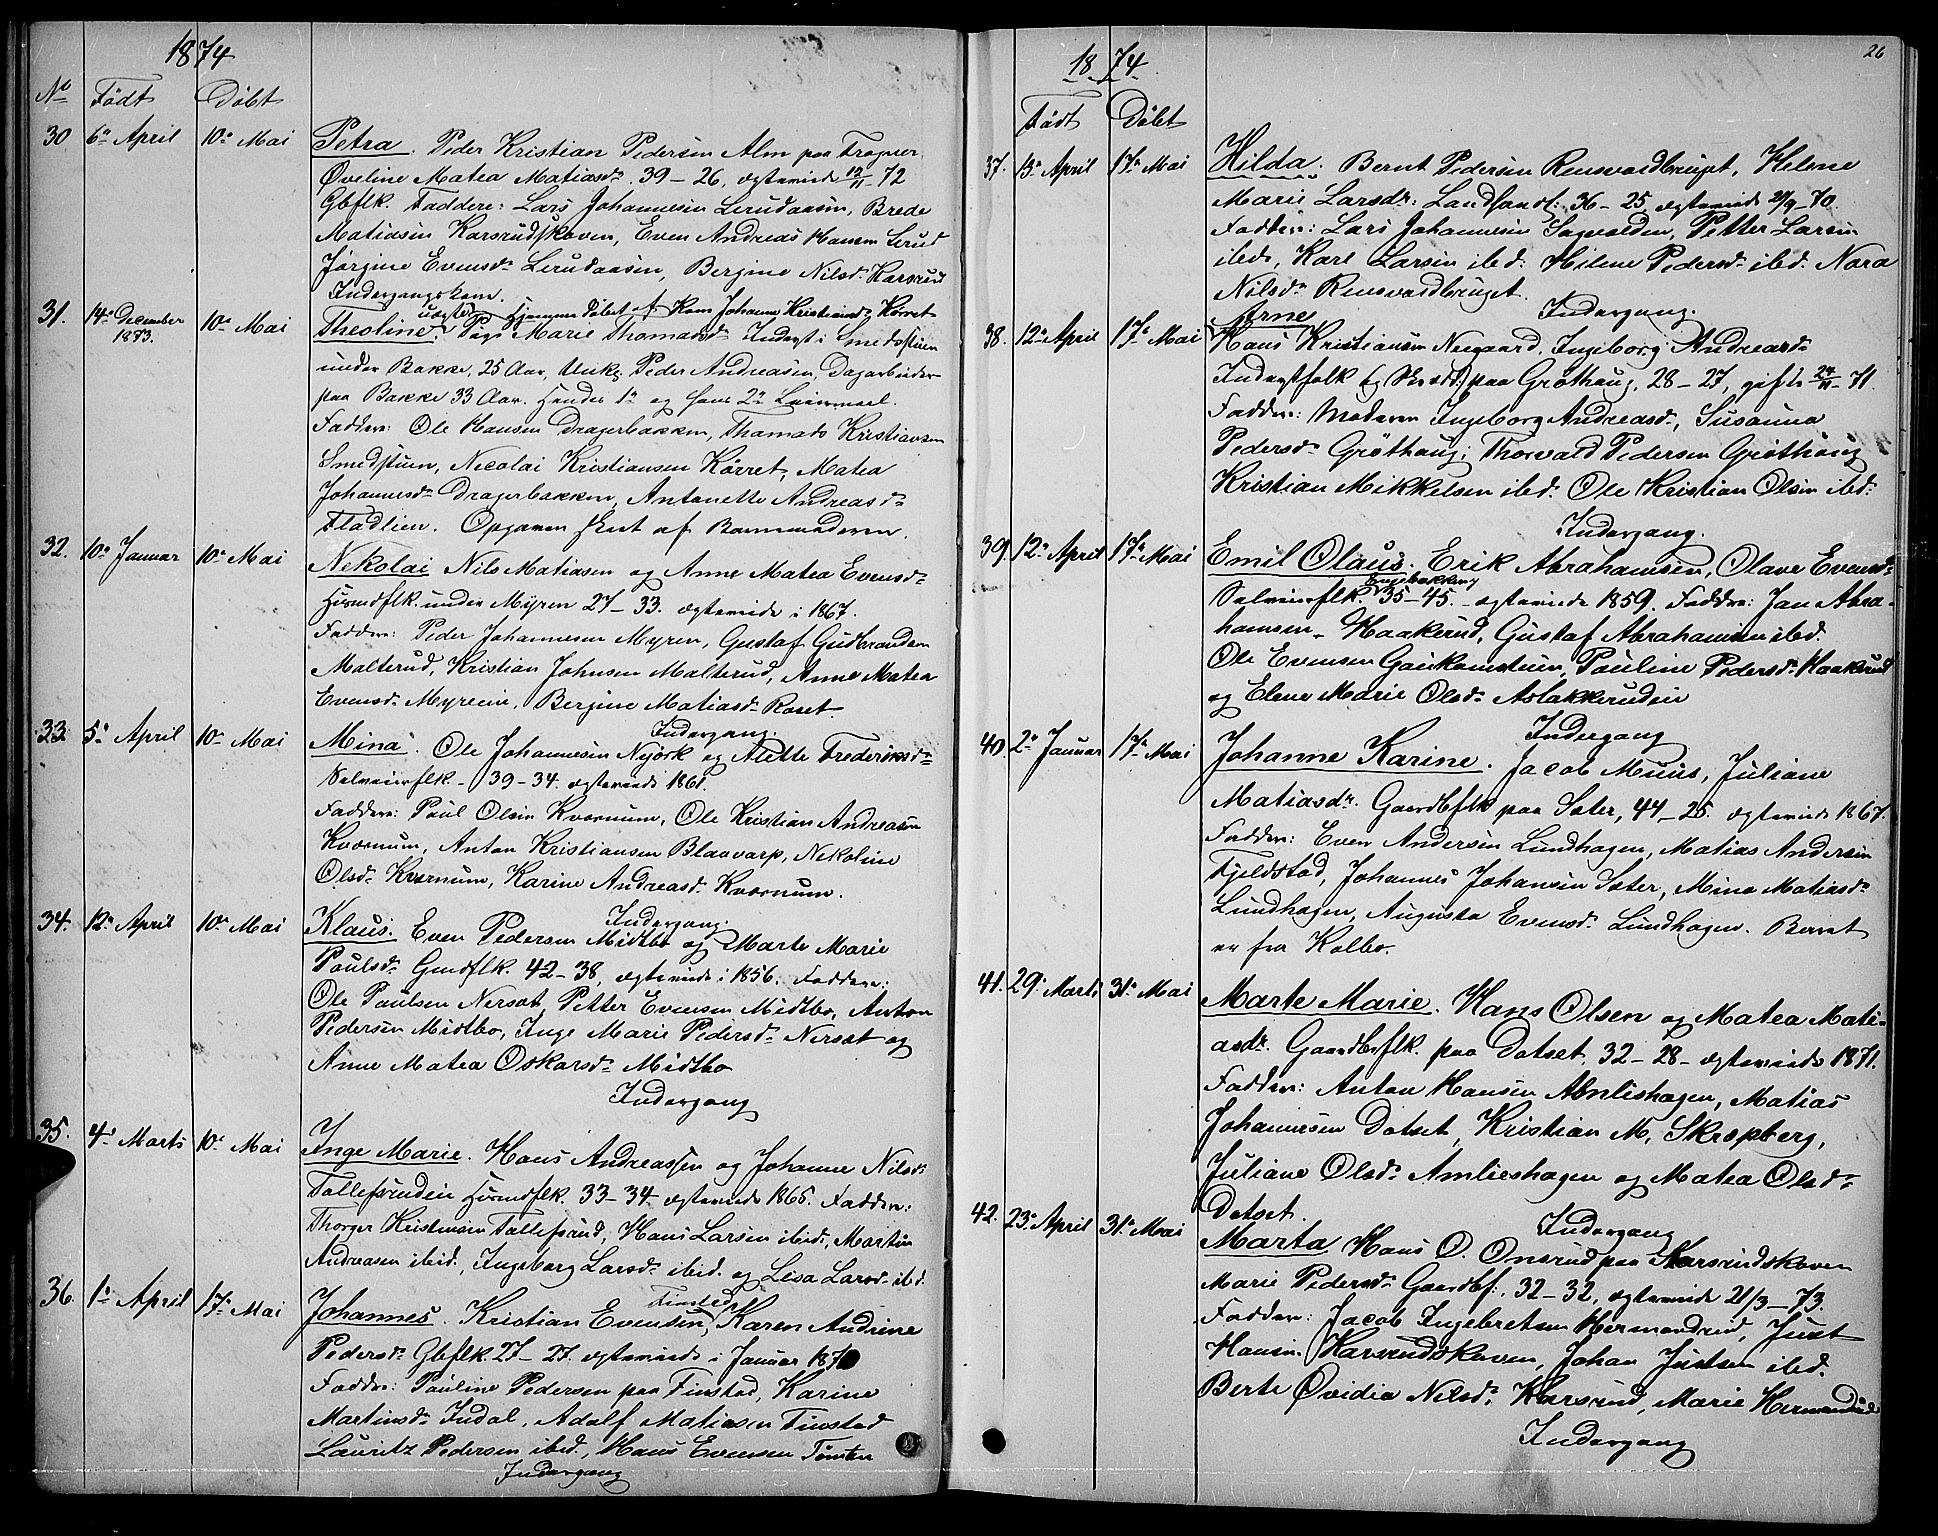 1874
No Født Døbt
30 6te April 10de Mai Petra. Peder Kristian Pedersen Alm paa Fragner
Øveline Matea Matiasdr. 39-26, ægteviede 12/11 72
Gbflk. Faddere: Lars Johannesen Lerudaasen, Brede
Matiasen Karsrudskoven, Even Andreas Hansen Lerud
Jørgine Evensdr Lerudaasen, Bergine Nilsdr Karsrud
Indgangskone.
uægte Hjemmedøbt af Kone Johanne Kristiansdr Kørret
31. 14de December 1873. 10de Mai Theoline. Pige Marie Thomasdr Inderst i Smedstuen
under Bakke, 25 Aar, Unkr. Peder Andreasen, Dagarbeider
paa Bakke 33 Aar. Hendes 1ste og hans 2det Leiermaal.
Faddere: Ole Hansen Dragerbakken, Thomas Kristiansen
Smedstuen, Nicolai Kristiansen Kørret, Matea
Johannesdr Dragerbakken, Antonette Andreasdr
Fladlien. Opgaven skeet af Barnemoderen.
32. 10de Januar 10de Mai Nekolai Nils Matiasen og Anne Matea Evensdr
Husmdflk. under Myren 27-33. ægteviede i 1867.
Faddere: Peder Johannesen Myren, Gustaf Gudbrandsen
Malterud, Kristian Johnsen Malterud, Anne Matea
Evensdr Myreeie, Bergine Matiasdr Roset.
Indgang.
33 5te April 10de Mai Mina. Ole Johannesen Nyörk og Alette Frederiksdr
Selveierflk. - 39-34. ægteviede 1861.
Faddere: Paul Olsen Kværnum, Ole Kristian Andreasen
Kværnum, Anton Kristiansen Blaavarp, Nekoline
Olsdr Kværnum, Karine Andreasdr Kværnum.
Indgang.
34. 12te April 10de Mai Klaus. Even Pedersen Midtbø og Marte Marie
Paulsdr Gmdflk. 42-38, ægteviede i 1856. Faddere:
Ole Paulsen Nersæt, Petter Evensen Midtbø, Anton
Pedersen Midtbø, Inge Marie Pedersdr Nersæt og
Anne Matea Oskarsdr Midtbø
Indgang
35. 4de Marts 10de Mai Inge Marie. Hans Andreassen og Johanne Nilsdr
Tollefsrudeie Husmdflk. 33-34. ægteviede 1865. Faddere:
Thorger Kristensen Tollefsrud, Hans Larsen ibid., Martin
Andreasen ibid., Ingeborg Larsdr ibid. og Lisa Larsdr ibd.
Finstad
36. 1ste April 17de Mai Johannes. Kristian Evensen, Karen Andrine
Pedersdr Gbflk. 27-27. ægteviede i Januar 187
Faddere: Pauline Pedersen paa Finstad, Karine
Martinsdr Indal, Adolf Matiasen Finstad
Lauritz Pedersen ibid., Hans Evensen
Indgang
26
1874.
Født Døbt
37. 13de April 17de Mai Hilda. Bernt Pedersen Rensvoldbruget, Helene
Marie Larsdr: Landhandl: 36-25 ægteviede 21/9-70.
Faddere: Lars Johannesen Sagvolden, Petter Larsen
ibid., Karl Larsen ibid: Helene Pedersdr ibid. Nora
Nilsdr Rensvoldbruget.
Indgang.
Arne
38. 12te April 17de Mai Hans Kristiansen Neegaard, Ingeborg Andreasdr
Inderstfolk paa Grøthaug, 28-27, gifte 24/11-71.
Faddere: Moderen Ingeborg Andreasd., Susanna
Pedersdr Grøthaug, Thorvald Pedersen Grøthaug
Kristian Mikkelsen ibid: Ole Kristian Olsen ibid:
Indgang.
39. 12te April 17de Mai Emil Olaus. Erik Abrahamsen, Olave Evensdr
Engebakken
Selveierflk. 35-45. ægteviede 1859. Faddere: Jan Abra-
hamsen Haakerud, Gustaf Abrahamsen ibid.
Ole Evensen Gaukomstuen, Pauline Pedersdr Haakerud
og Elene Marie Olsdr Aslakkerudeie
Indgang
40. 2den Januar 17de Mai Johanne Karine. Jacob Muus, Juliane
Matiasdr. Gaardbflk paa Sater, 44-25. ægteviede 1867.
Faddere: Even Andersen Lundhagen, Matias Andersen
Fjeldstad, Johannes Johansen Sater, Mina Matiasdr
Lundhagen, Augusta Evensdr Lundhagen. Barnet
er fra Kolbo.
41. 29de Marts 31te Mai Marte Marie. Hans Olsen og Matea Mati-
asdr. Gaardbrflk. paa Dotset, 32-28- ægteviede 1871.
Faddere: Anton Hansen Amlishagen, Matias
Johannesen Dotset, Kristian M. Skrepberg,
Juliane Olsdr Amlieshagen og Matea Olsdr
Dotset.
Indgang
42. 23de April 31te Mai Marta Hans O. Onsrud paa Karsrudskoven
Marie Pedersdr Gaardbf:. 32-32, ægteviede 21/3-73.
Faddere: Jacob Ingebretsen Hermandrud, Just
Hansen Karsrudskoven, Johan Justsen ibid.
Berte Øvidia Nilsdr Karsrud, Marie Hermandrud
Indgang